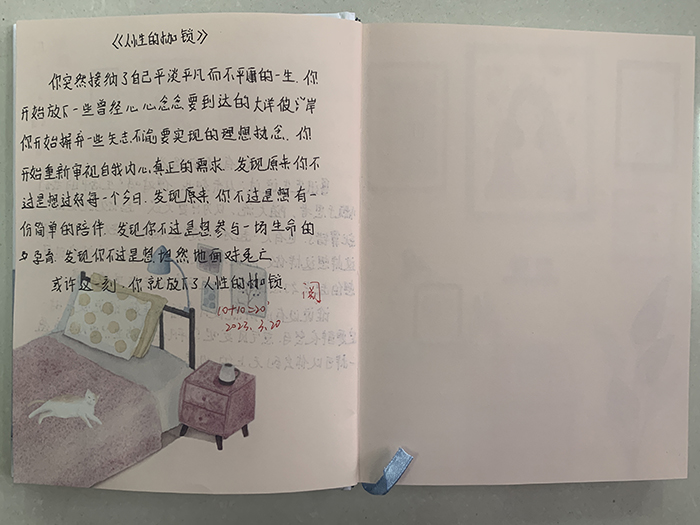 《人性的枷锁》
你突然接纳了自己平淡平凡而不平庸的一生.你
开始放下一些曾经心心念念要到达的大洋彼岸
你开始摒弃一些矢志不渝要实现的理想执念.你
开始重新审视自我内心真正的需求.发现原来你不
过是想过好每一个今日.发现原来你不过是想有一
份简单的陪伴.发现你不过是想参与一场生命的
孕育.发现你不过是想坦然地面对死亡
或许这一刻.你就放下了人性的枷锁.
阅
10+10=20
2023.3.20